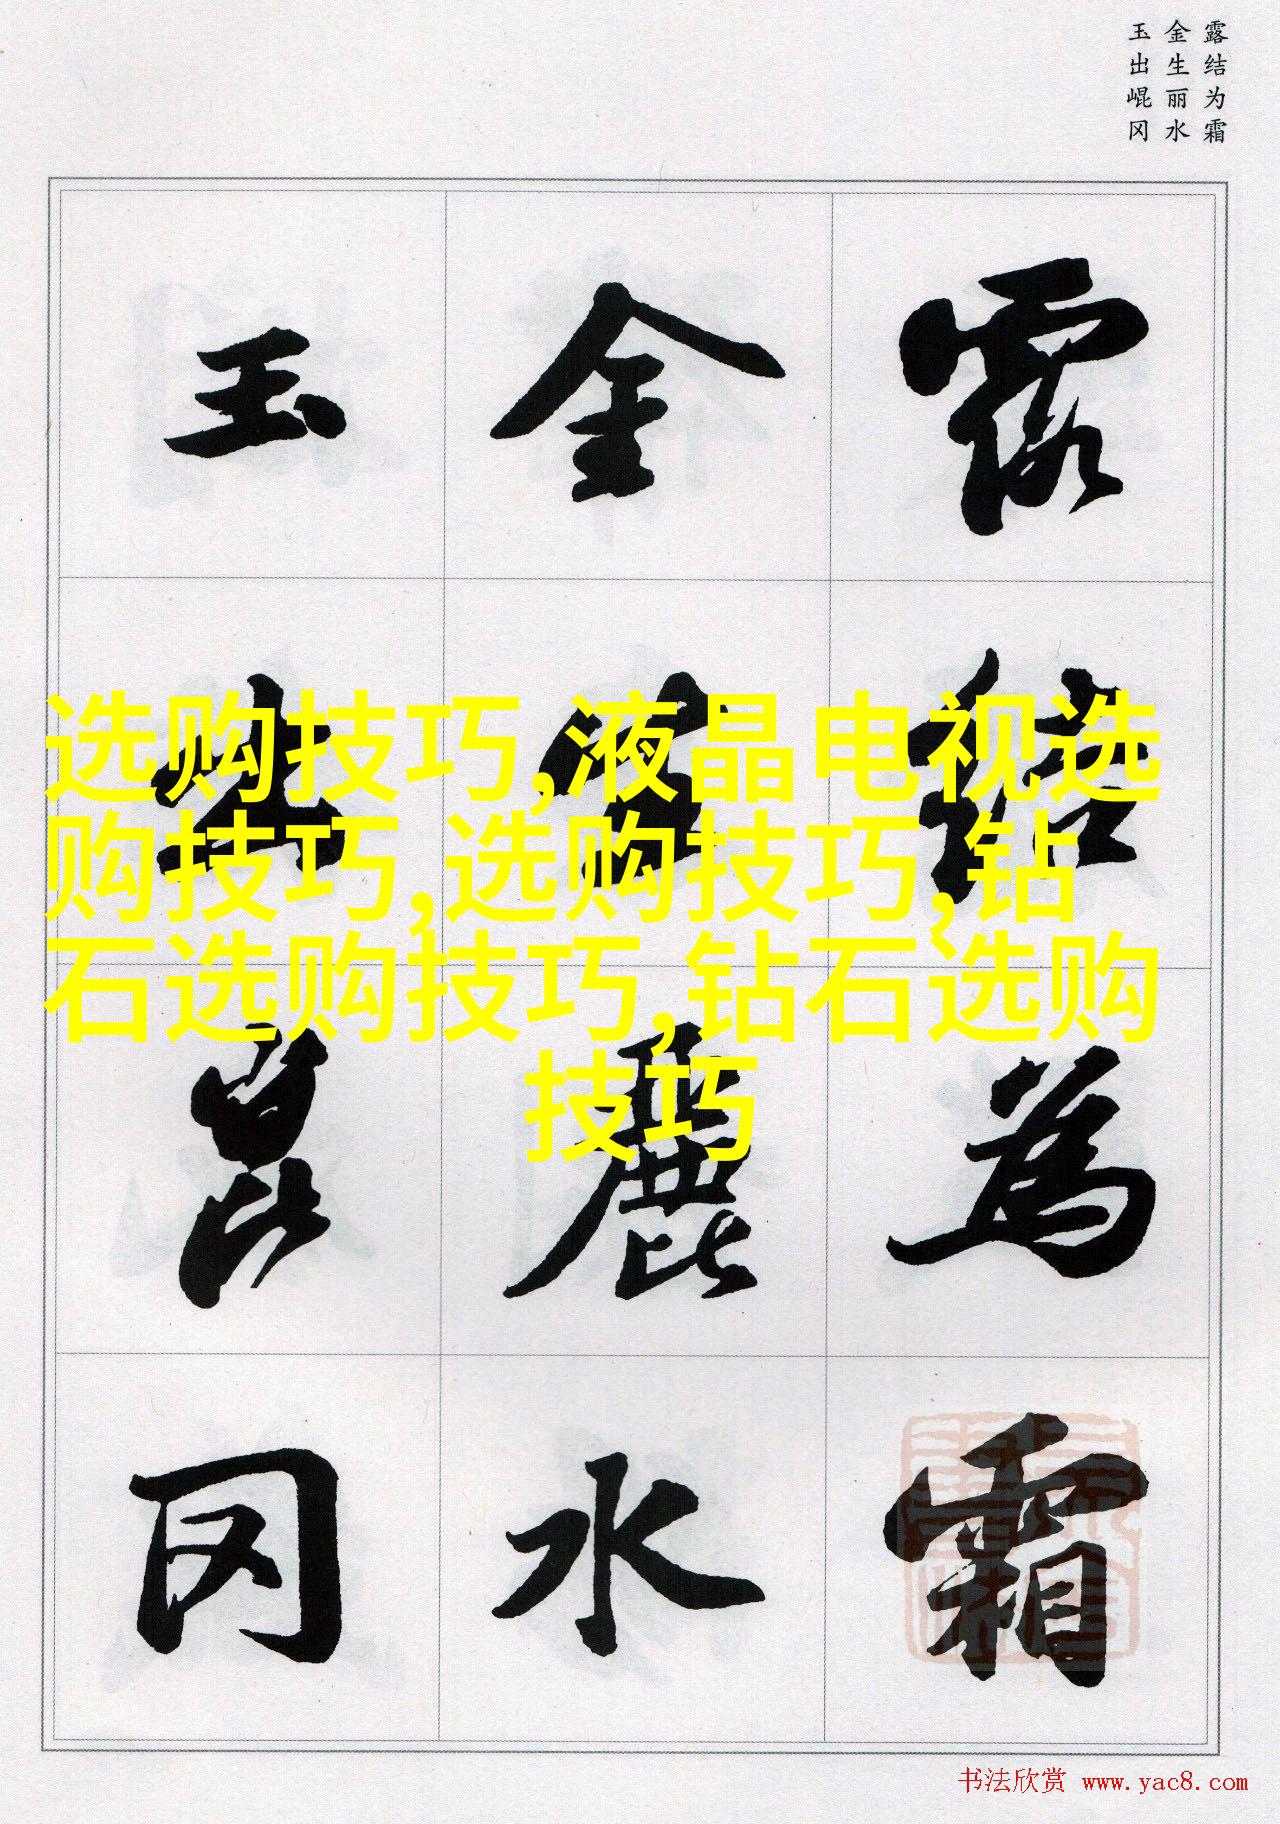 露结为霜
金生丽水
玉出崐冈
露結為霜
金生麗水
玉出崑冈
选购技巧,液晶电视选
购技巧,选购技巧,钻
石选购技巧,钻石选购
技巧
书法欣赏 www.yac8.com